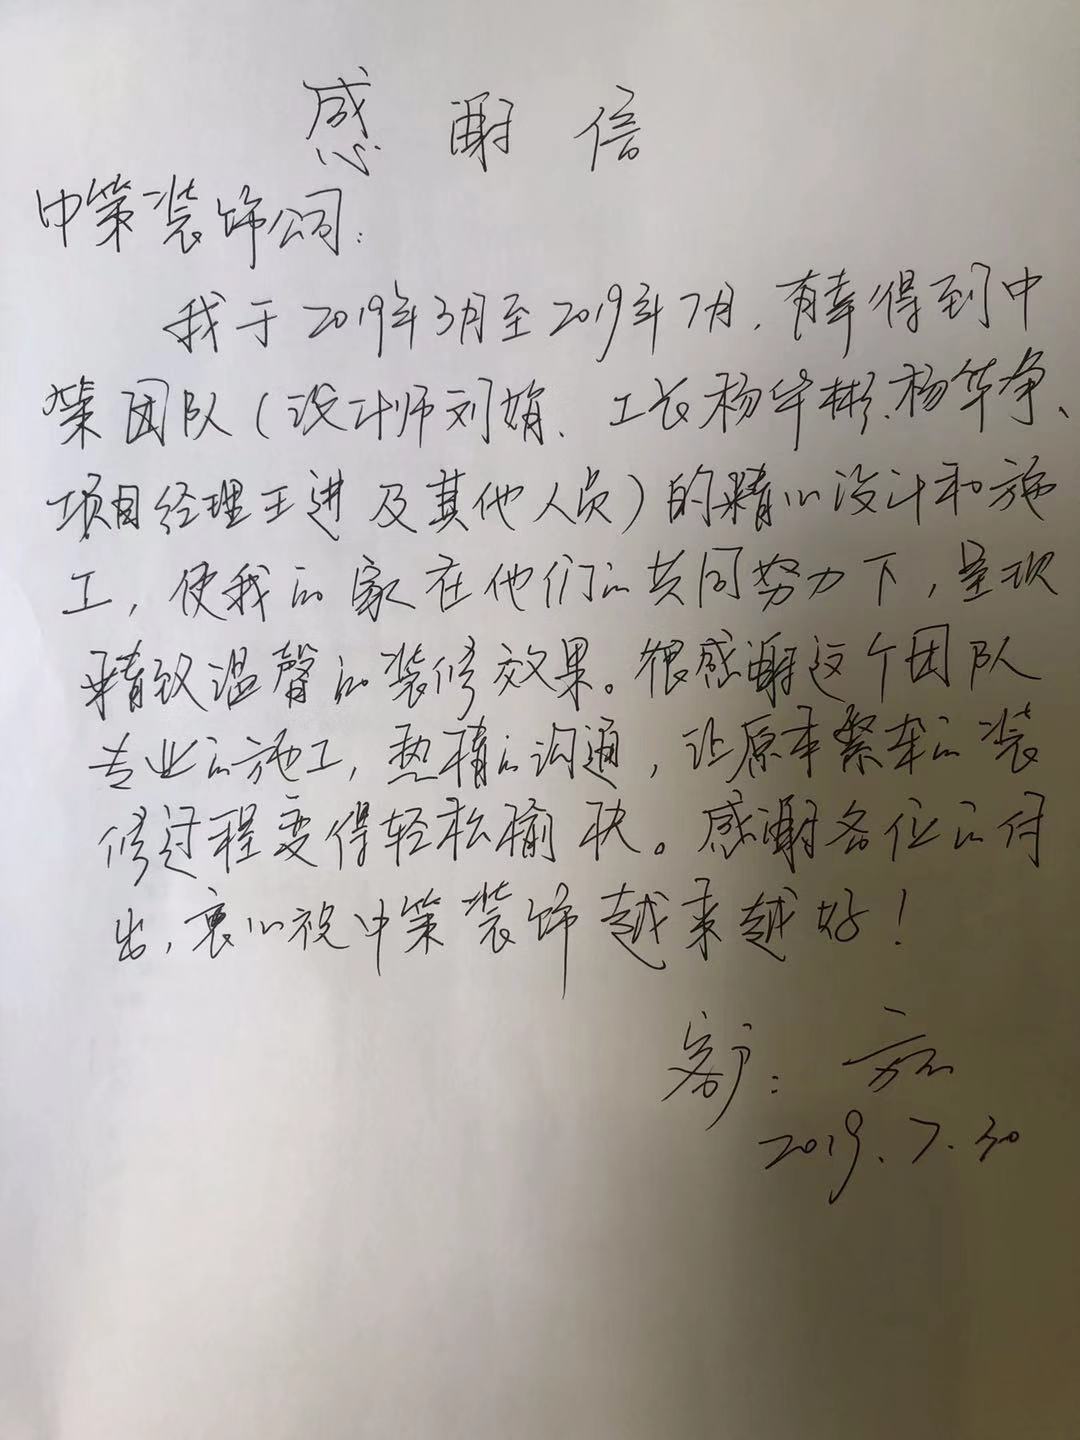 感谢信
中策装饰公司:
我于2019年3月至2019年7月，有幸得到中
策团队(设计师刘娟、工长杨华彬、杨华争、
项目经理王进及其他人员)的精心设计和施
工，使我的家在他们的共同努力下，呈现
精致温馨的装修效果。很感谢这个团队
专业的施工，热情的沟通，让原本繁杂的装
修过程变得轻松愉快。感谢各位的付
出，衷心祝中策装饰越来越好！
客户:
2019.7.30